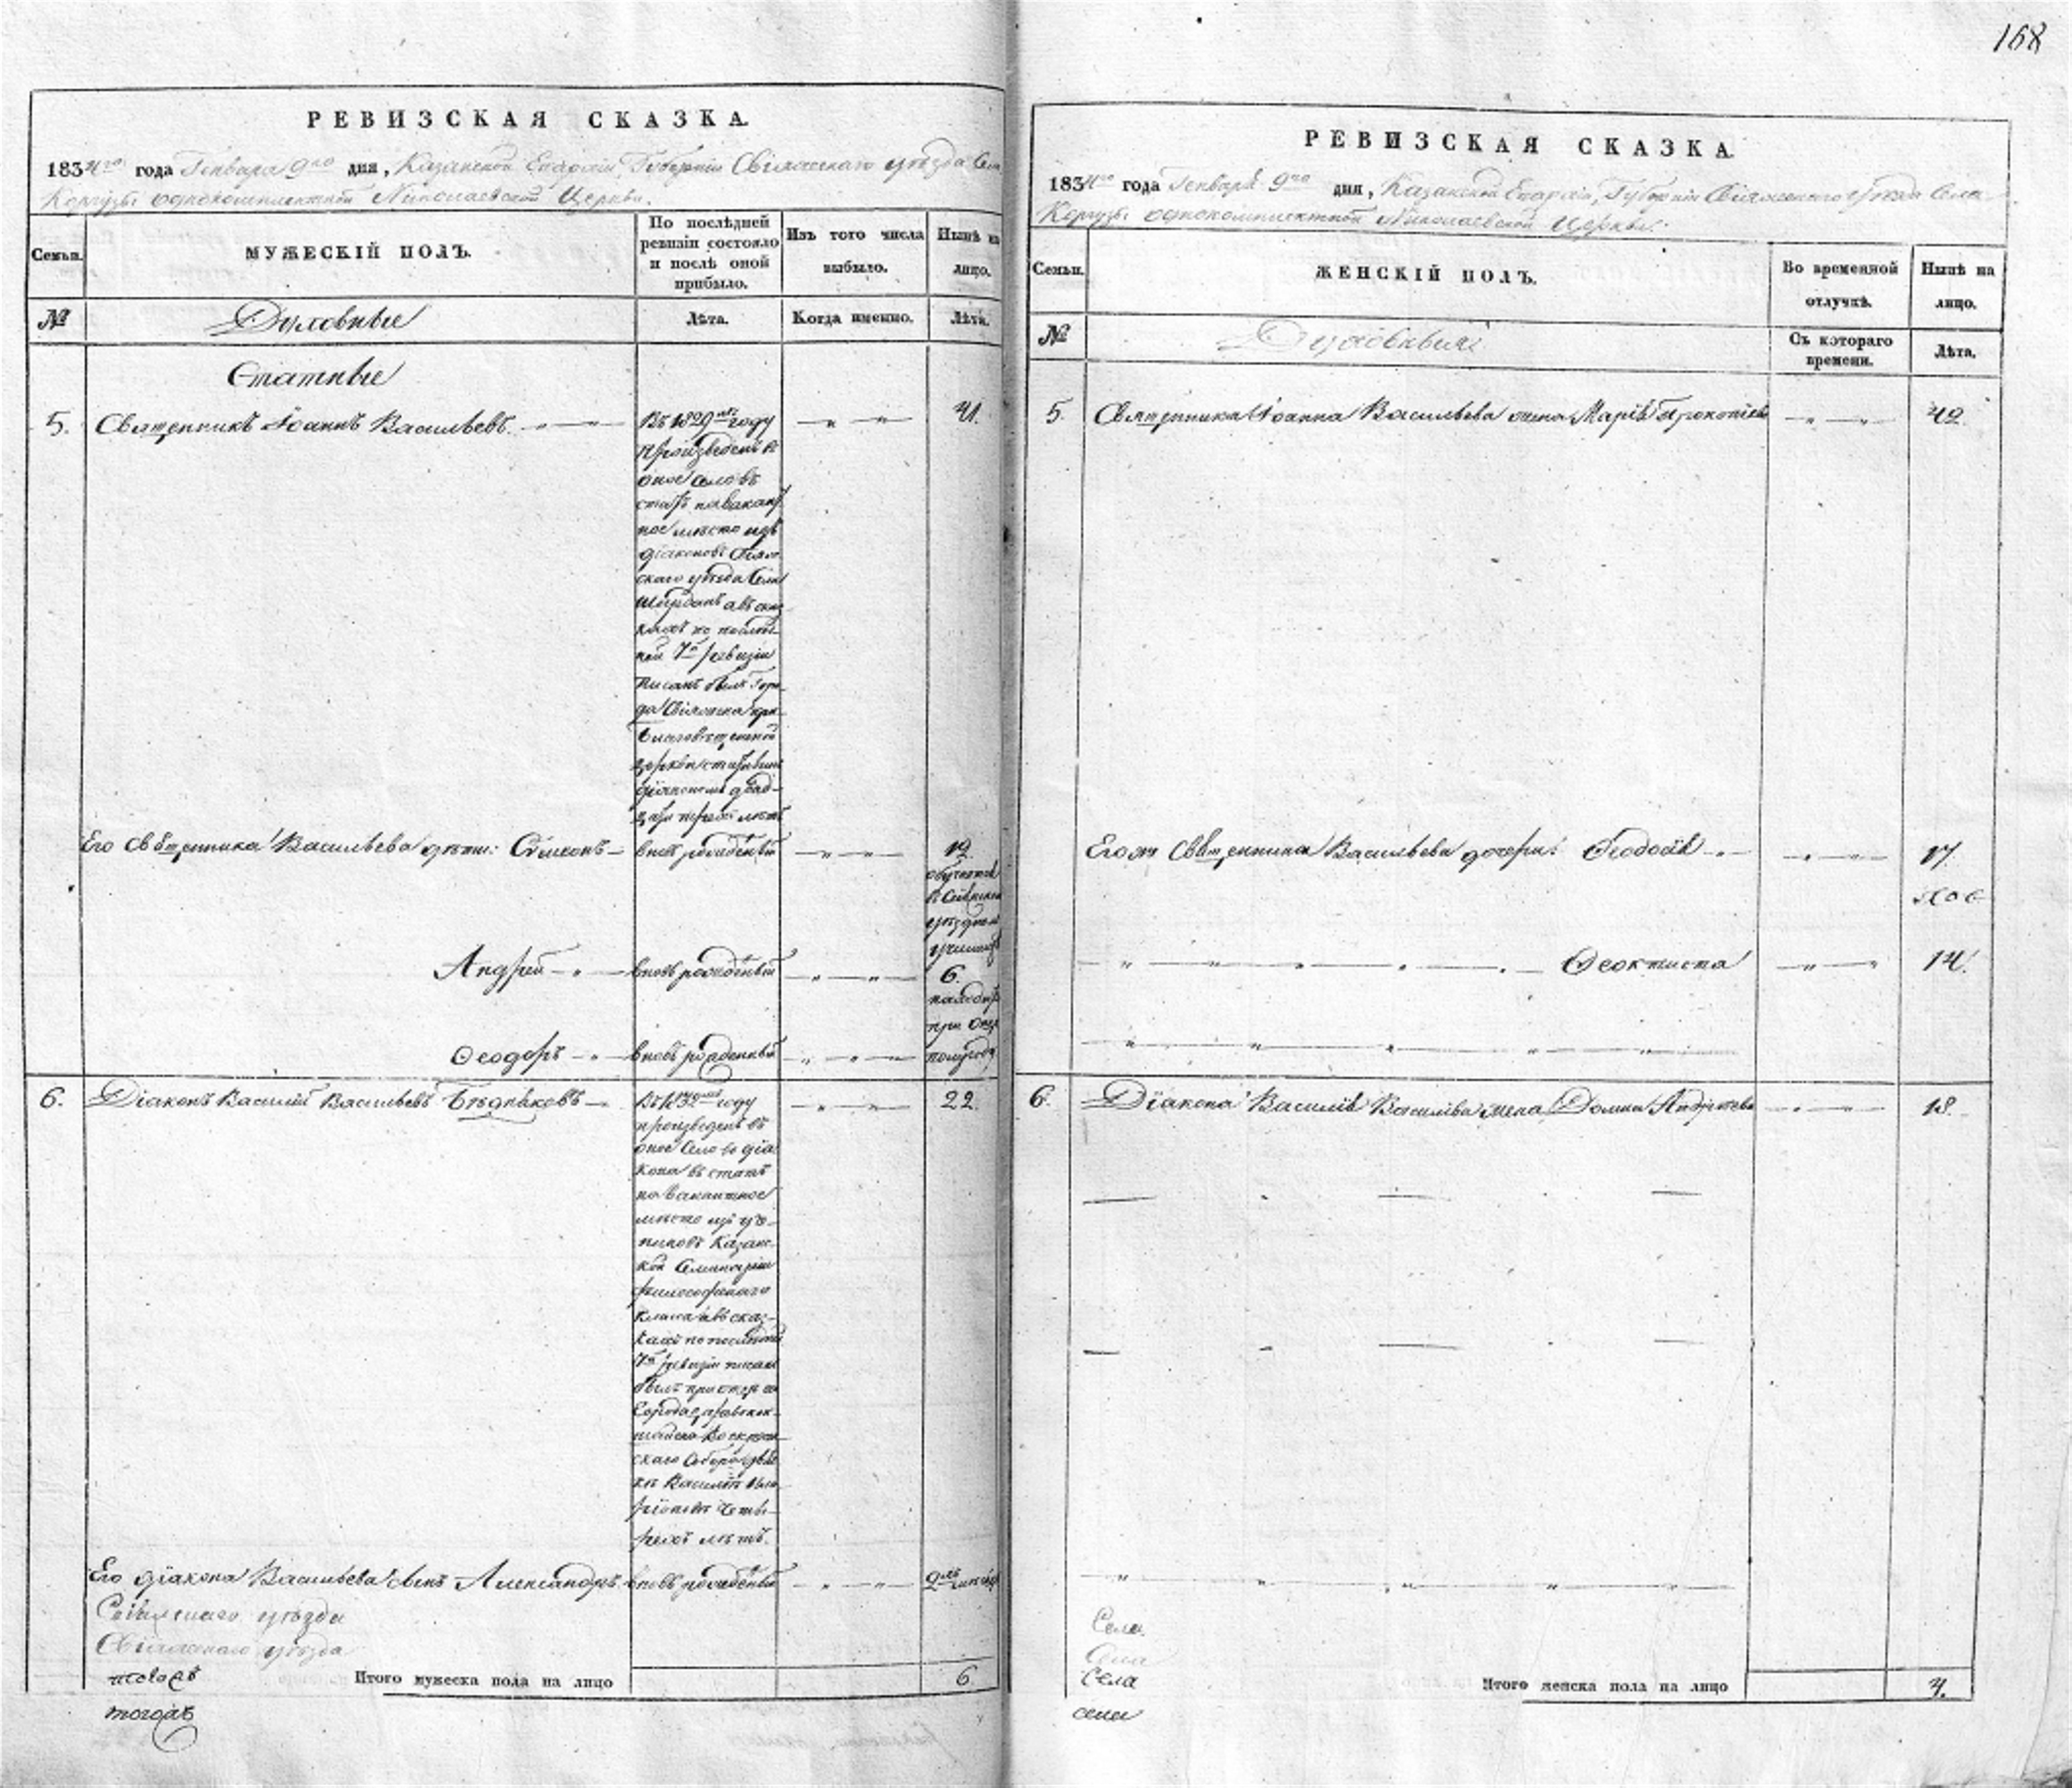 168
РЕВИЗСКАЯ СКАЗКА.
1834го года Генваря 9го дня, Казанской Епархіи, Губерніи Свіяжскаго уѣзда Села
Коргузы однокомплектной Николаевской Церкви.
Семьи.
МУЖЕСКІЙ ПОЛЪ.
По послѣдней
ревизіи состояло
и послѣ оной
прибыло.
Изъ того числа
выбыло.
Нынѣ на
лицо.
№
Духовные
Лѣта.
Когда именно.
Лѣта.
Статные
5. Священникъ Іоаннъ Васильевъ
Въ 1829мъ году
произведенъ в
оное село въ
статъ на вакант
ное мѣсто изъ
діаконовъ
скаго уѣзда села
а въ ска
по послѣд
ней 7й ревизіи
писанъ былъ горо
да Свіяжска при
Благовещенской
церкви
діакономъ двад
цати трехъ лѣтъ
41.
Его священника Васильева дѣти: Симеонъ
вновь рожденный
19.
обучается
въ Свіяжском
уѣздном
училищѣ
Андрей
вновь рожденный
6.
находит
при отцѣ
Ѳеодоръ
вновь рожденный
полугода
6. Діаконъ Василій Васильевъ Бѣдняковъ
Въ 1832мъ году
произведенъ въ
оное село во діа
кона въ статъ
на вакантное
мѣсто изъ уче
никовъ Казанс
кой Семинаріи
философскаго
класса а въ сказ
кахъ по послѣдней
7й ревизіи писанъ
былъ при отцѣ
города Царевокок
шайска Воскресен
скаго Собора
Василіѣ
четы
рехъ лѣтъ.
22.
Его діакона Васильева сынъ Александръ
вновь рожденный
2хъ
Свіяжскаго уѣзда
Свіяжскаго уѣзда
Итого мужеска пола на лицо
6
РЕВИЗСКАЯ СКАЗКА.
1834го года Генваря 9го дня, Казанской Епархіи, Губерніи Свіяжского уѣзда Села
Коргузы однокомплектной Николаевской Церкви.
Семьи.
ЖЕНСКІЙ ПОЛЪ.
Во временной
отлучкѣ.
Нынѣ на
лицо.
№
Духовныя
Съ котораго
времени.
Лѣта.
5. Священника Іоанна Васильева жена Марія Прокопіева
42.
Его же священника Васильева дочери: Ѳеодосія
17.
Ѳеоктиста
14.
6. Діакона Василія Васильева жена Домна Андреева
18.
Села
Села
Села
села
Итого женска пола на лицо
4.